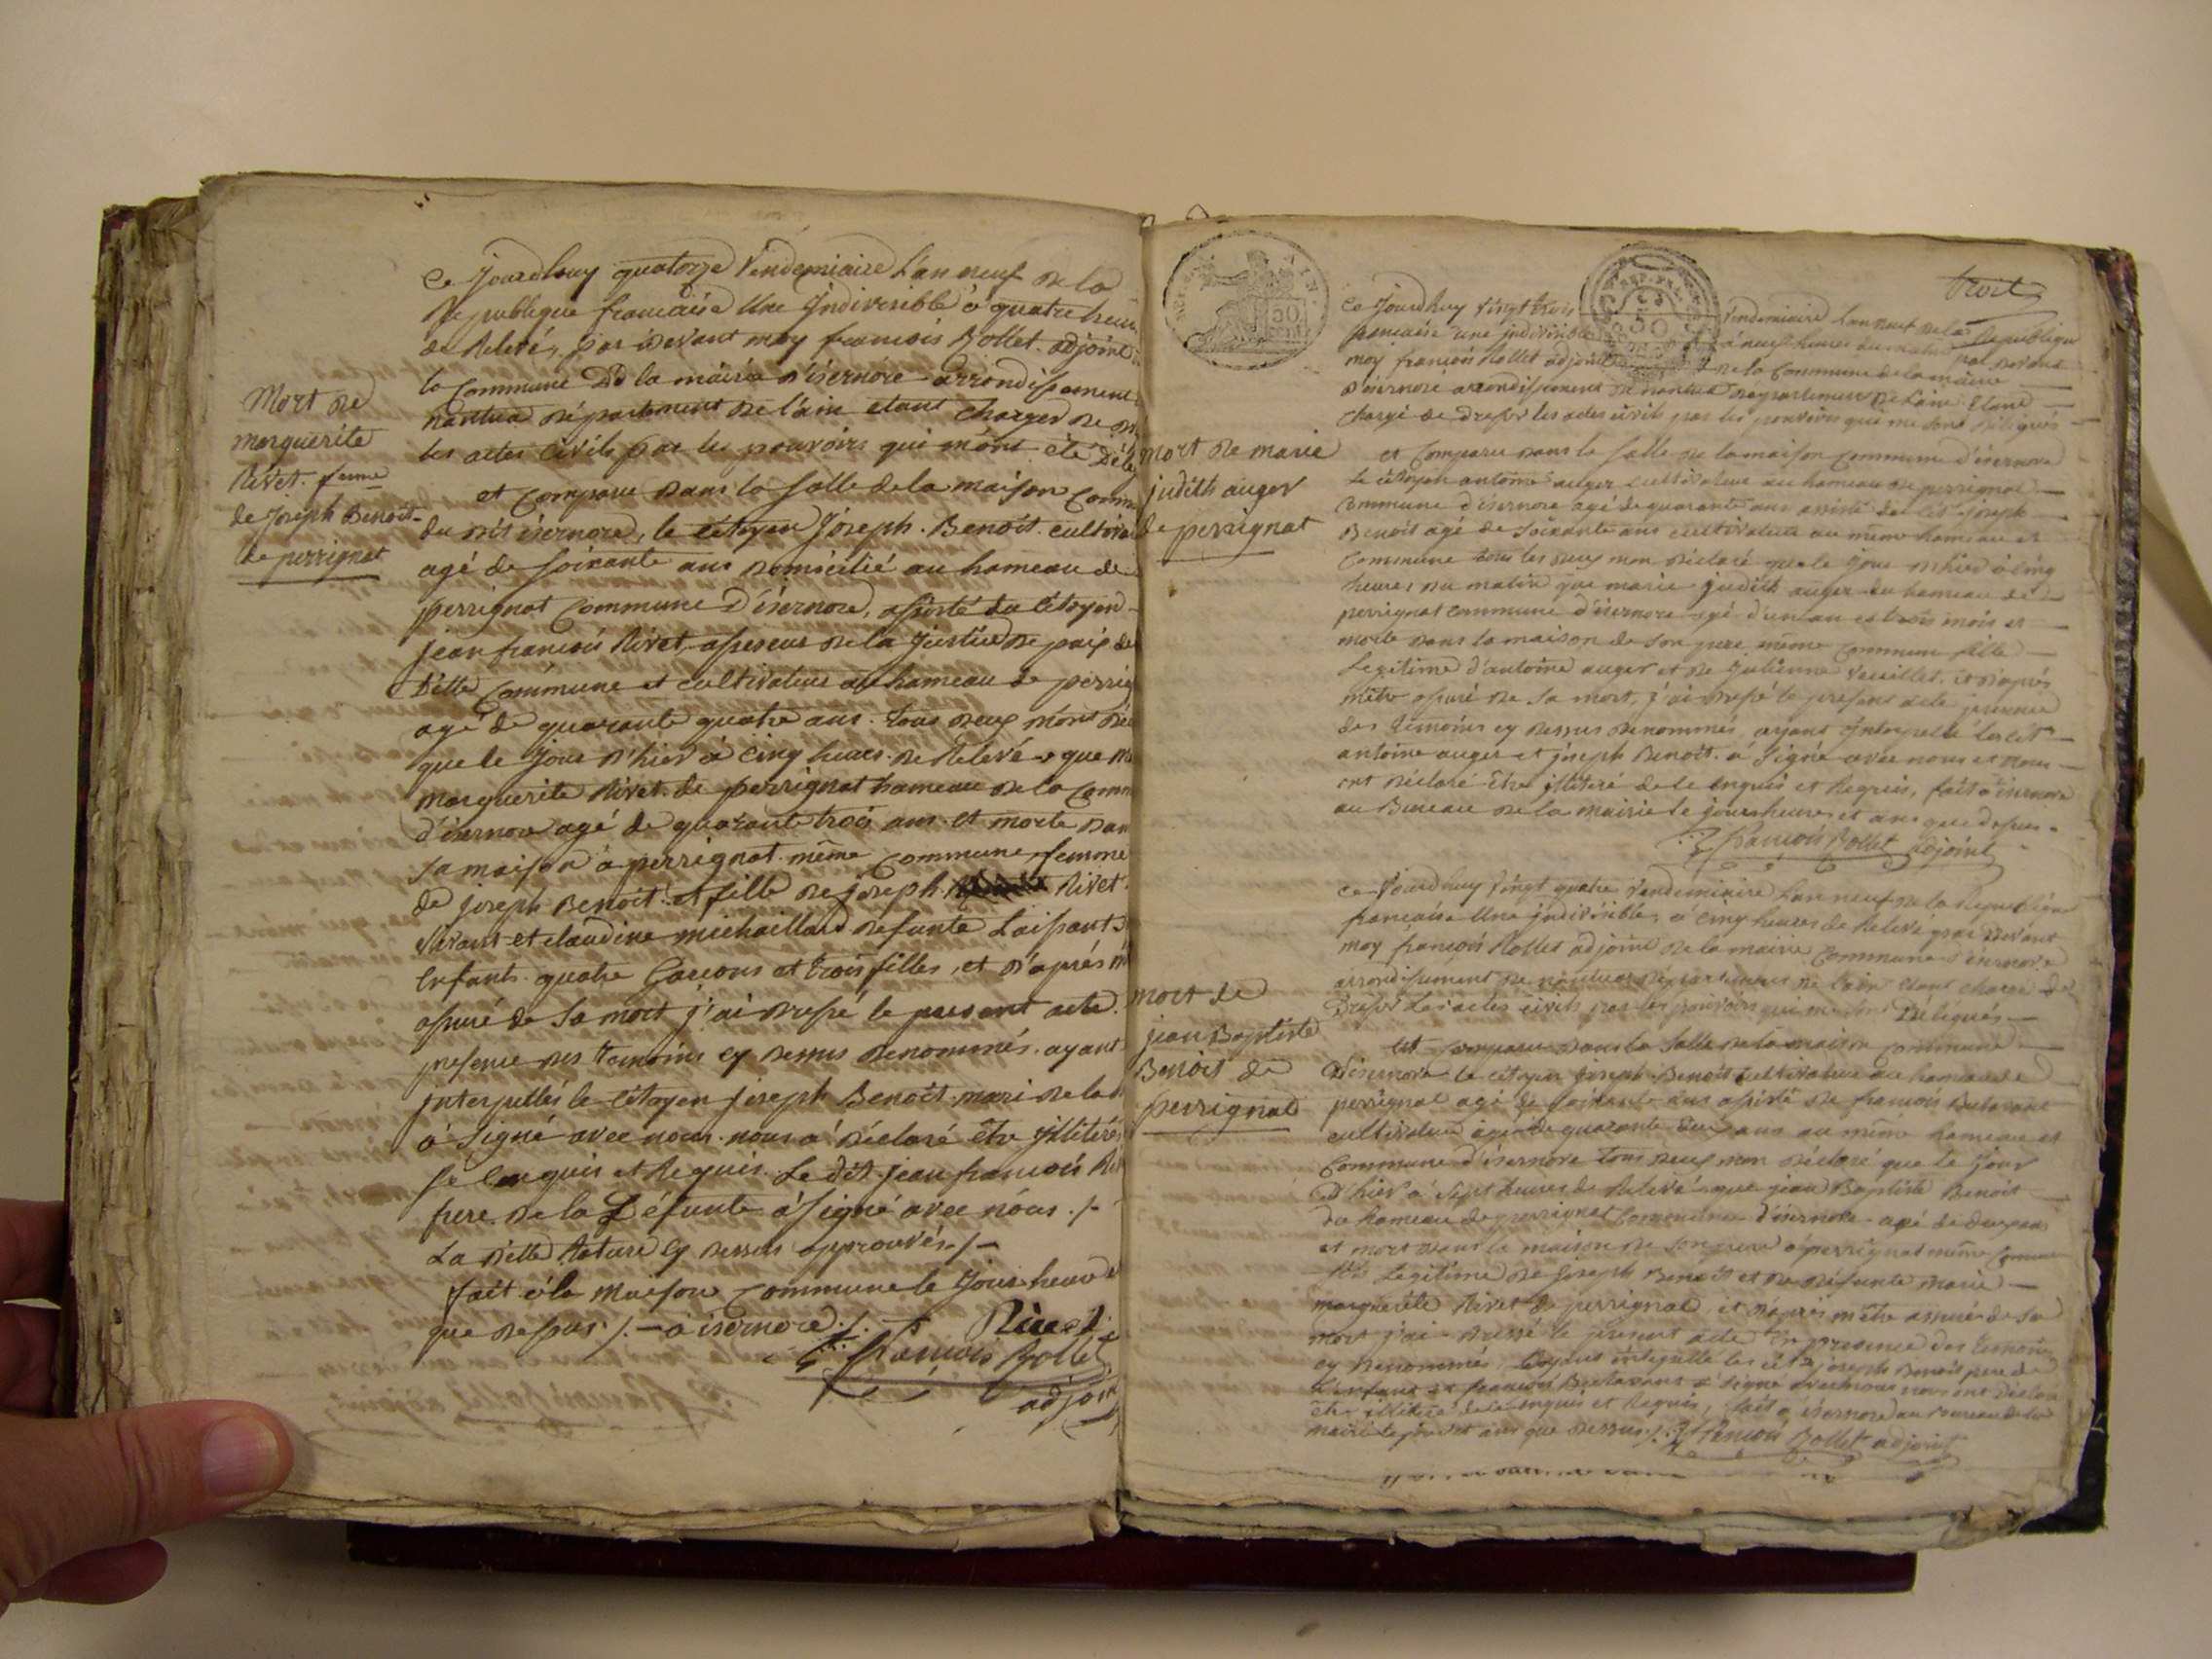 Mort de
marguerite
Rivet. femme
de Joseph Benoit
de perrignat
Ce Jourdhuy quatorze Vendemiaire L'an neuf de la
Republique francaise Une Indivisible à quatre heures
de Relevé, par devant moy francois Rollet adjoint
la Commune De la mairie d'isernore arrondissement
nantua département de l'ain etant Charger de
les actes Civils par les pouvoirs qui mónt été
et comparu dans la Salle de la maison
du dit isernore, le Citoyen Joseph. Benoit
agé de soixante ans Domicilié au hameau de
perrignat Commune D'isernore, assisté du Citoyen
jean francois Rivet, assesseur de la Justice de paix de
Ditte Commune et cultivateur au hameau de
agé de quarante quatre ans. tous deux m'ont
que le Jour D'hier à Cinq heures de Relevé, que
marguerite Rivet. de perrignat hameau de la
d'isernore agé de quarante trois ans et morte
sa maison à perrignat même Commune, femme
de joseph Benoit et fille de joseph Rivet
Vivant et claudine michaillard défunte Laissant
Enfants quatre Garcons et trois filles, et d'aprés
assuré de Sa mort j'ai dressé le present acte
presence des temoins cy dessus denommés. ayant
jnterpellés le Citoyen joseph Benoit mari de la
à Signé avec nous. nous a déclaré être jllitéré
de Enquis et Requis. Le dit jean francois
frere de la Défunte à signé avec nous ./-
La ditte Rature cy dessus approuvés ./-
fait à la Maison Commune le Jour heure
que dessus ./.- à isernore ./.
Rivet
francois Rollet
adjoint
50
trois
mort de marie
judith auger
de perrignat
Ce Jourdhuy vingt trois Vendemiaire L'an neuf de la Republique
francaise une jndivisible à neuf heures du matin par devant
moy francois Rollet adjoint de la Commune de la mairie
d'isernore arrondissement de nantua département de l'ain Etant
chargé de dresser les actes civils par les pouvoirs qui me sont délégués
et comparu dans la salle de la maison commune d'isernore
Le citoyen antoine auger cultivateur au hameau de perrignat
commune d'isernore agé de quarante ans assisté de joseph
Benoit agé de soixante ans cultivateur au même hameau et
Commune tous les deux mon déclaré que le jour d'hier à cinq
heures du matin que marie judith auger du hameau de
perrignat commune d'isernore agé d'un an et trois mois et
morte dans la maison de son pere même commune fille
Legitime d'antoine auger et de Julienne Vuillet, et d'aprés
m'etre assuré de sa mort, j'ai dressé le present acte
des témoins cy dessus denommés, ayant Interpellé
antoine auger et joseph Benoit. à signé avec nous et nous
ont déclaré être jllitéré de enquis et Requis, fait à isernore
au Bureau de la mairie le jour heure et an que dessus
francois Rollet adjoint
mort de
jean Baptiste
Benoit de
perrignat
ce Jourdhuy vingt quatre Vendemiaire L'an neuf de la Republique
francaise Une jndivisible, à cinq heures de Relevé par devant
moy francois Rollet adjoint de la mairie Commune d'isernore
arrondissement de nantua département de l'ain étant chargé de
dresser les actes civils par les pouvoirs qui me sont Délégués
Et comparu dans la Salle de la maison commune
D'isernore le citoyen Joseph Benoit cultivateur au hameau de
perrignat agé de soixante ans assisté de francois
cultivateur agé de quarante deux ans au même hameau et
Commune d'isernore tous deux mon déclaré que le jour
d'hier à sept heures de Relevé que jean Baptiste Benoit
du hameau de perrignat Commune d'isernore agé de deux ans
et mort dans la maison de son pere à perrignat même Commune
fils Legitime de Joseph Benoit et de défunte Marie
marguerite Rivet de perrignat, et d'aprés m'être assuré de sa
mort j'ai dressé le present acte En presence des témoins
cy denommés, ayant interpellé les joseph Benoit pere de
L'enfant et francois à signé avec nous nous ont déclaré
être illitéré de enquis et Requis, fait à isernore au Bureau de la
mairie le jour et an que dessus ./. francois Rollet adjoint